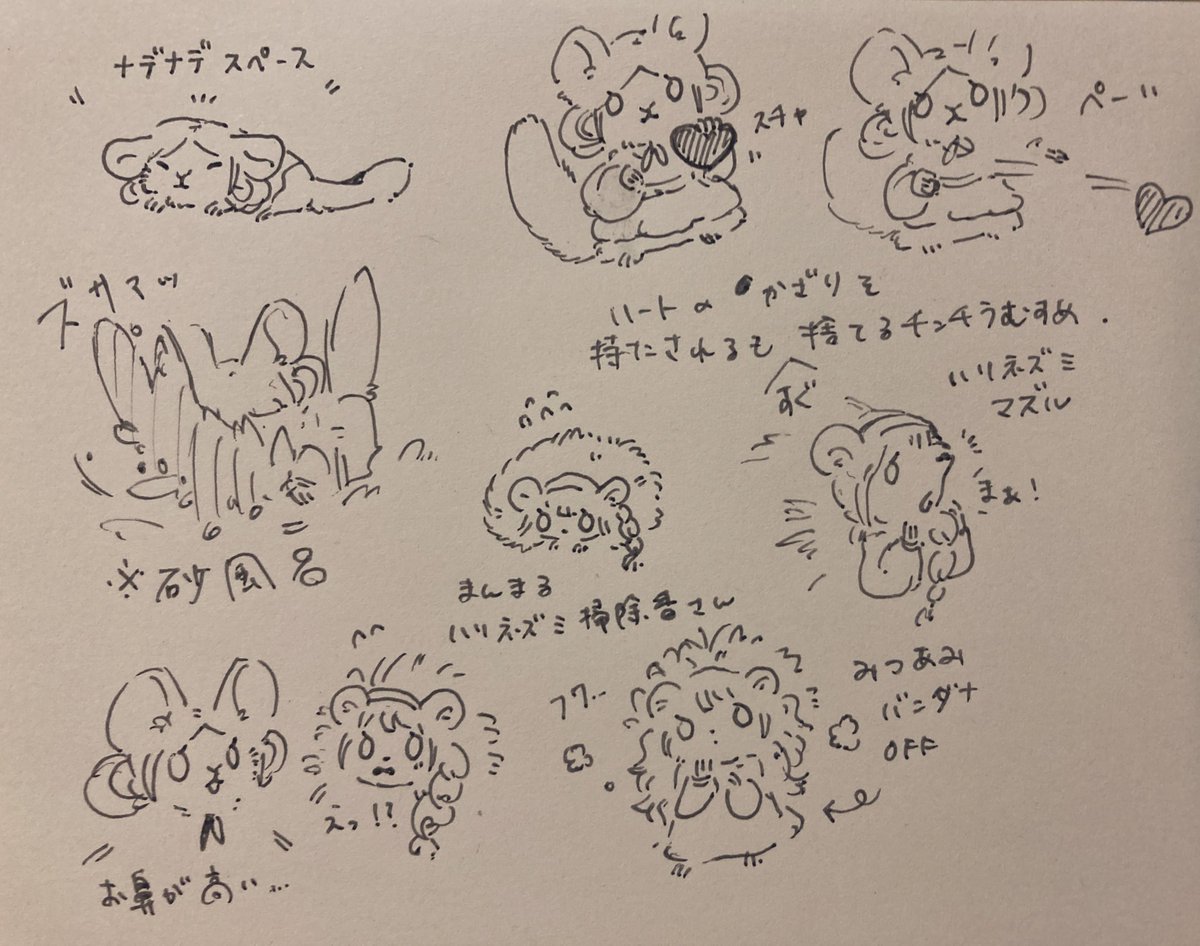 ナデナデスペース
スチャ
ペーッ
ハートのかざりを
持たされるも捨てるチンチラむすめ.
すぐ
ハリネズミ
マズル
まぁ!
※砂風呂
まんまる
ハリネズミ掃除番さん
みつあみ
バンダナ
OFF
えっ!?
お鼻が高い...